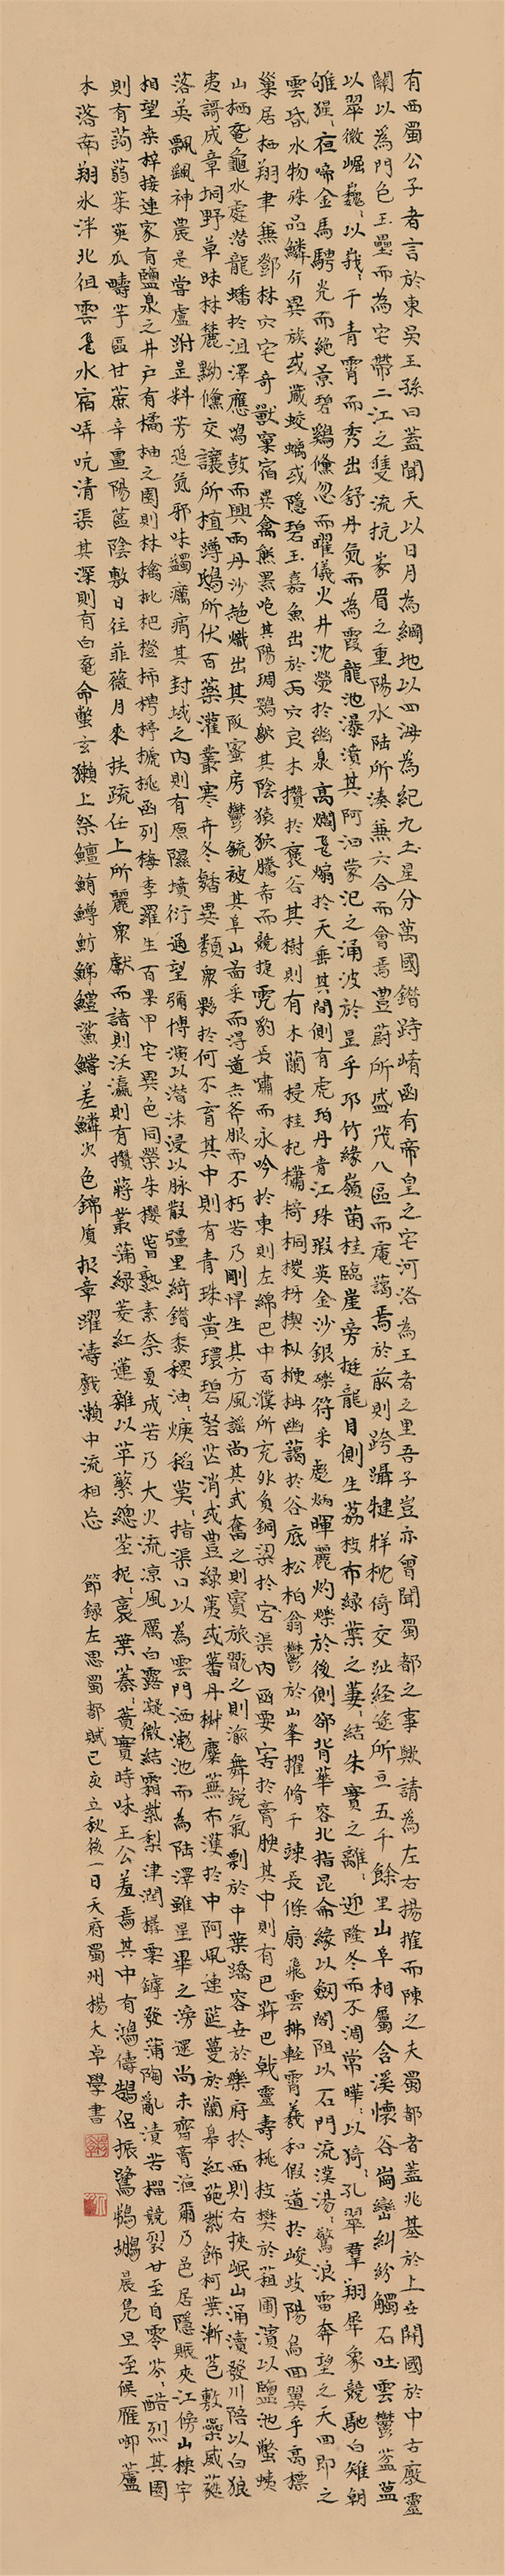 有西蜀公子者言於東吳王孫曰蓋聞天以日月為綱地以四海為紀九土星分萬國錯跱崤函有帝皇之宅河洛為王者之里吾子豈亦曾聞蜀都之事歟請為左右揚搉而陳之夫蜀都者蓋兆基於上世開國於中古廓靈
關以為門包玉壘而為宅帶二江之雙流抗峩眉之重陽水陸所湊兼六合而會焉豐蔚所盛茂八區而庵藹焉於前則跨躡犍牂枕倚交趾經途所亘五千餘里山阜相屬含溪懷谷崗巒糾紛觸石吐雲鬱葐蒀
以翠微崛巍〻以峩〻干青霄而秀出舒丹氣而為霞龍池瀑濆其阿汩蒙汜之涌波於是乎邛竹緣嶺菌桂臨崖旁挺龍目側生荔枝布綠葉之萋〻結朱實之離〻迎隆冬而不凋常曄〻以猗〻孔翠群翔犀象競馳白雉朝
雊猩〻夜啼金馬騁光而絕景碧鷄儵忽而曜儀火井沈熒於幽泉高爓飛煽於天垂其間則有虎珀丹青江珠瑕英金沙銀礫符采彪炳暉麗灼爍於後則卻背華容北指昆侖緣以劍閣阻以石門流漢湯〻驚浪雷奔望之天回即之
雲昏水物殊品鱗介異族或藏蛟螭或隱碧玉嘉魚出於丙穴良木攢於褒谷其樹則有木蘭梫桂杞櫹椅桐椶枒楔樅楩柟幽藹於谷底松柏蓊鬱於山峯擢脩干竦長條扇飛雲拂輕霄羲和假道於峻歧陽烏回翼乎高標
巢居栖翔聿兼鄧林穴宅奇獸窠宿異禽熊羆咆其陽鵰鶚鴥其陰猿狖騰希而競捷虎豹長嘯而永吟於東則左綿巴中百濮所充外負銅梁於宕渠內函要害於膏腴其中則有巴菽巴戟靈壽桃枝樊於蒩圃濱以鹽池蟞蛦
山栖黿龜水處潛龍蟠於沮澤應鳴鼓而興雨丹沙赩熾出其阪蜜房鬱毓被其阜山圖采而得道赤斧服而不朽若乃剛悍生其方風謠尚其武奮之則賨旅翫之則渝舞銳氣剽於中葉蹻容世於樂府於西則右挾岷山涌瀆發川陪以白狼
夷謌成章坰野草昧林麓黝儵交讓所植蹲鴟所伏百藥灌叢寒卉冬馥異類眾夥於何不育其中則有青珠黃環碧砮芒消或豐綠荑或蕃丹椒麋蕪布濩於中阿風連莚蔓於蘭皋紅葩紫飾柯葉漸苞敷蘂葳蕤
落英飄颻神農是嘗盧跗是料芳追氣邪味蠲癘痟其封域之內則有原隰墳衍通望彌博演以潛沬浸以脉散疆里綺錯黍稷油〻粳稻莫〻指渠口以為雲門洒滮池而為陸澤雖星畢之滂遝尚未齊膏液爾乃邑居隱賑夾江傍山棟宇
相望桑梓接連家有鹽泉之井戶有橘柚之園則林檎枇杷橙柿梬楟榹桃函列梅李羅生百果甲宅異色同榮朱櫻昔熟素柰夏成若乃大火流涼風厲白露凝微結霜紫梨津潤樼栗罅發蒲陶亂潰若榴競裂甘至自零芬〻酷烈其園
則有蒟蒻茱萸瓜疇芋區甘蔗辛薑陽蓲陰敷日往菲薇月來扶疏任土所麗眾獻而諸則沃瀛則有攢蔣叢蒲綠菱紅蓮雜以草繁總莖柅〻裛葉蓁〻蕡實時味王公羞焉其中有鴻儔鵠侶振鷺鵜鶘晨鳧旦至候雁啣蘆
木落南翔冰泮北徂雲飛水宿哢吭清渠其深則有白黿命鼈玄獺上祭鱣鮪鱒魴鮷鱧鯊鱨差鱗次色錦質報章躍濤戲瀨中流相忘 節錄左思蜀都賦己亥立秋後一日天府蜀州楊大卓學書